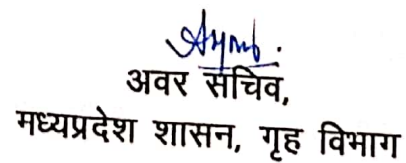 अवर सचिव,
मध्यप्रदेश शासन, गृह विभाग